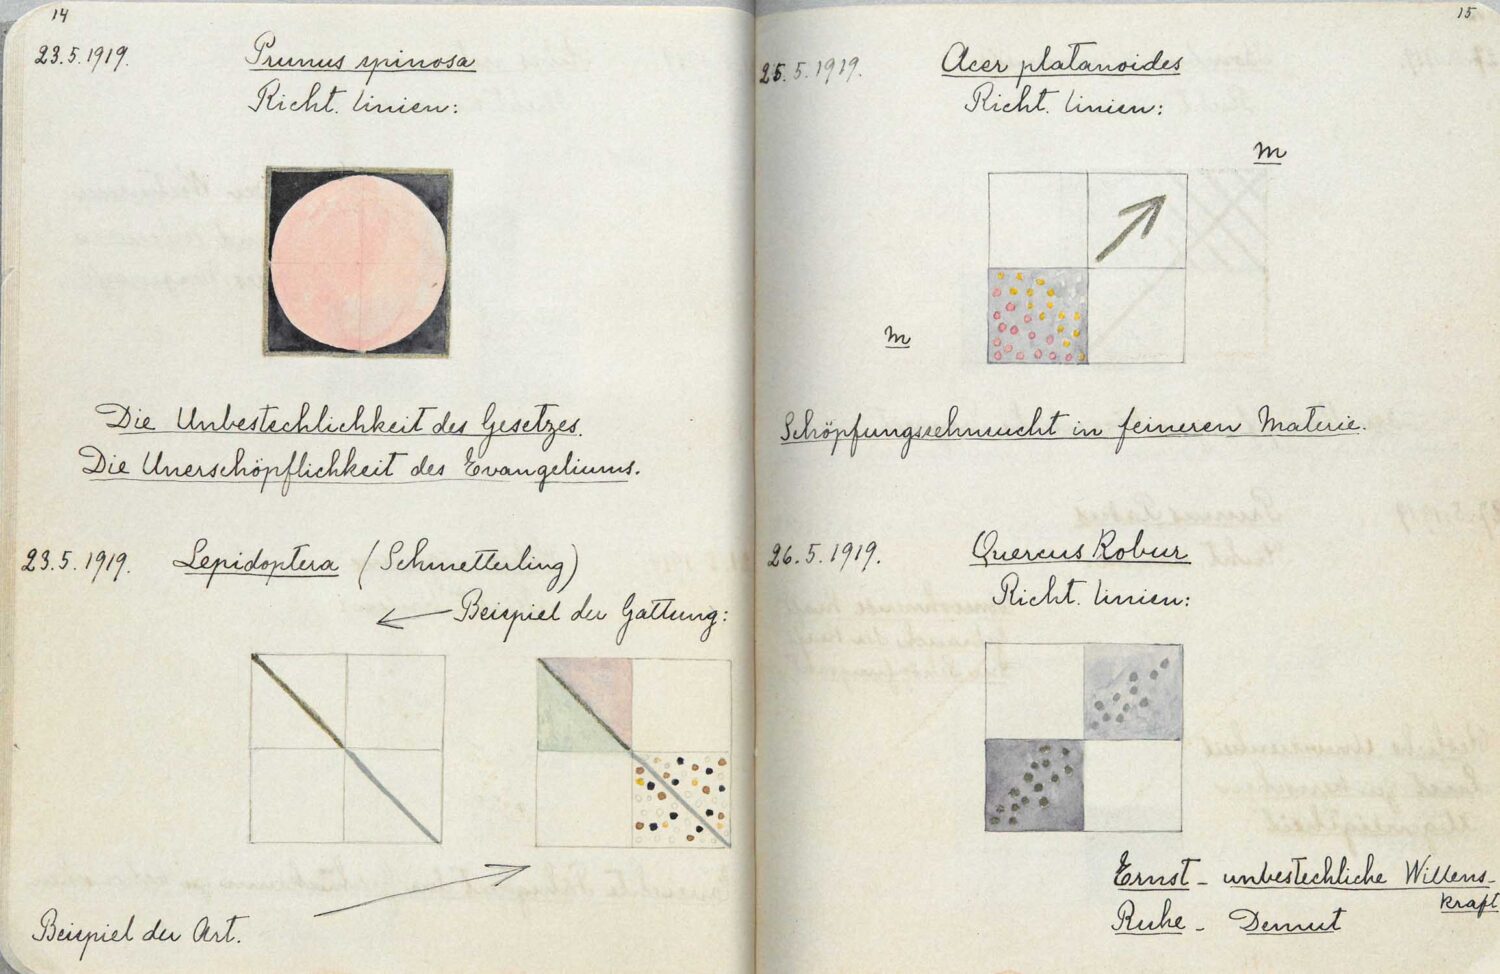 14
23.5.1919. Prunus spinosa
Richt. linien:
Die Unbestechlichkeit des Gesetzes.
Die Unerschöpflichkeit des Evangeliums.
23.5.1919. Lepidoptera (Schmetterling)
Beispiel der Gattung:
Beispiel der Art.
15
25.5.1919. Acer platanoides
Richt. linien:
m
m
Schöpfungssehnsucht in feineren Materie.
26.5.1919. Quercus Robur
Richt. linien:
Ernst - unbestechliche Willens-
kraft
Ruhe - Demut